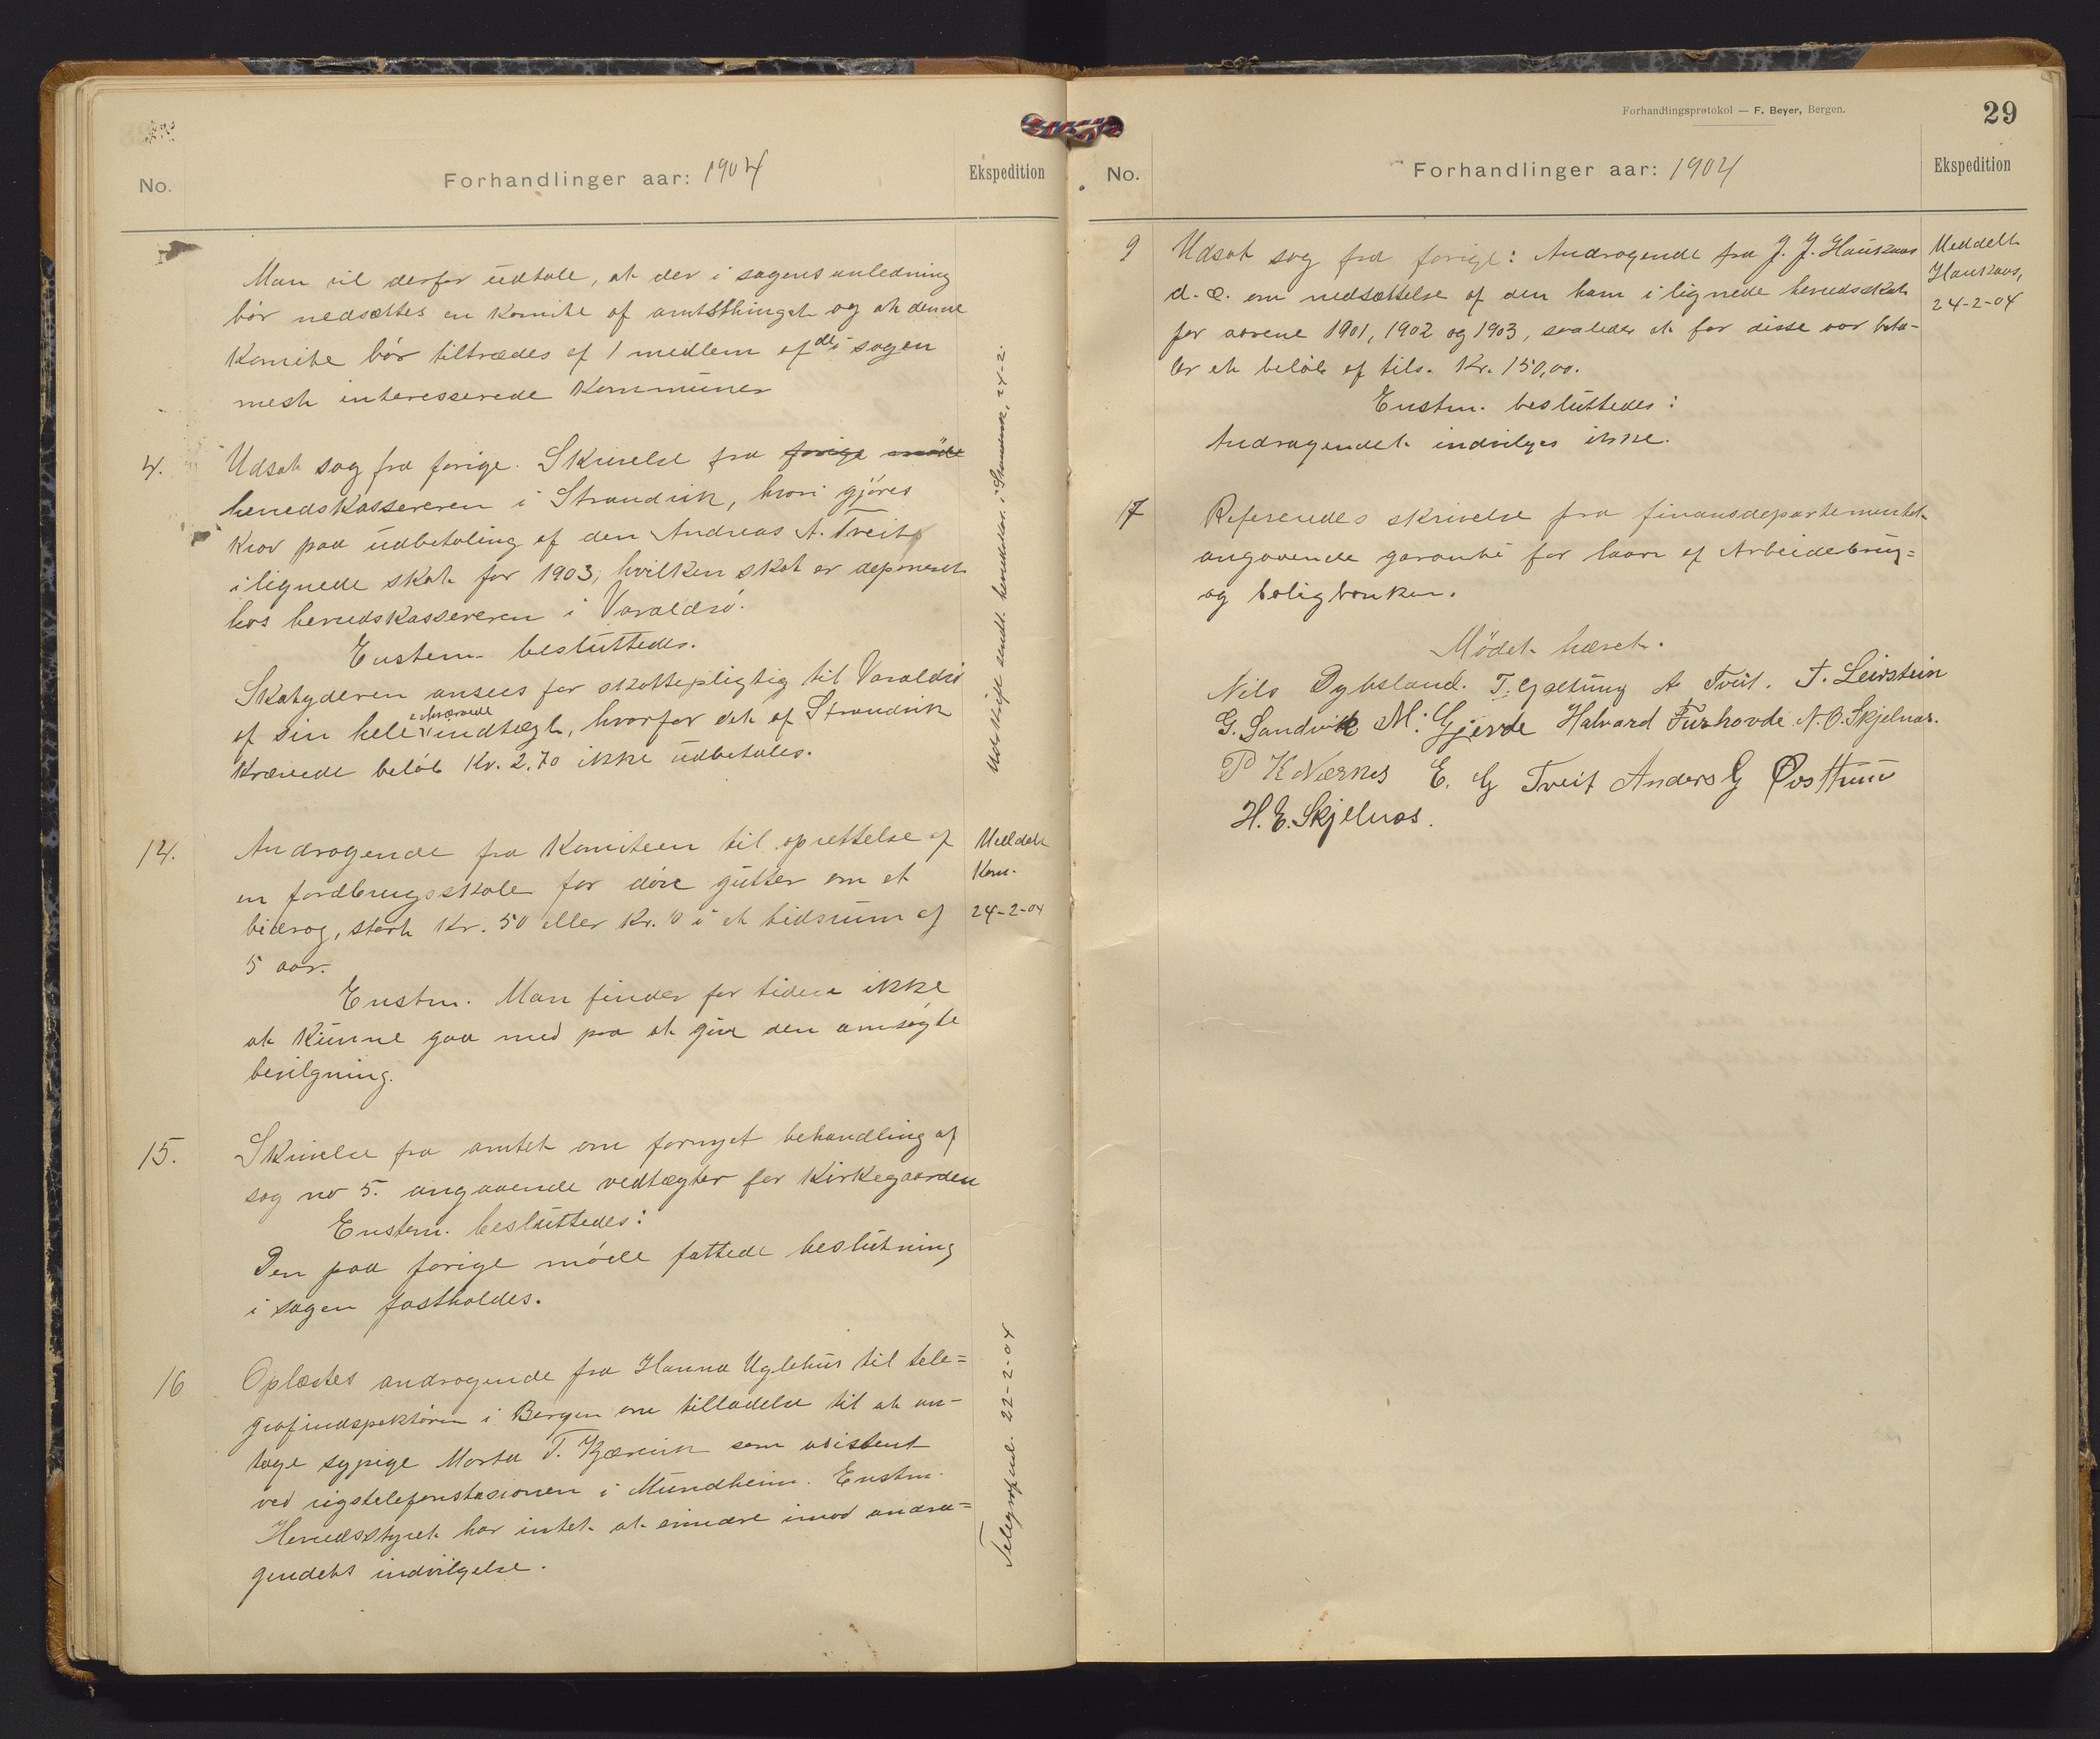 No.
Forhandlinger aar: 1904
Ekspedition
Man vil derfor udtale, at der i sagens anledning
bør nedsættes en komite af amtsthinget og at denne
komite bør tiltrædes af 1 medlem af de i sagen
mest interesserede kommuner
4.
Udsat sag fra forige. Skrivelse fra forige møde
herredskassereren i Strandvik, hvori gjøres
krav paa udbetaling af den Andreas A. Tveit
ilignede skat for 1903, hvilken skat er deponeret
hos herredskassereren i Varaldsø.
Enstem. besluttedes.
Skatyderen ansees for skattepligtig til Varaldsø
af sin hele erhvervede indtægt, hvorfor det af Strandvik
krævede beløb Kr. 2.70 ikke udbetales.
Udskrift sendt herredskas. i Strandvik, 24-2.
14.
Andragende fra komiteen til oprettelse af
en jordbrugsskole for døve gutter om et
bidrag, stort Kr. 50 eller Kr. 10 i et tidsrum af
5 aar.
Enstm. Man finder for tiden ikke
at kunne gaa med paa at give den omsøgte
bevilgning.
Meddelt
Kom.
24-2-04
15.
Skrivelse fra amtet om fornyet behandling af
sag no 5. angaaende vedtægter for kirkegaarden
Enstem. besluttedes:
Den paa forige møde fattede beslutning
i sagen fastholdes.
16
Oplæstes andragende fra Hanna Uglehus til tele=
grafindspektøren i Bergen om tilladelse til at an-
tage sypige Marta T. Kjærvik som asistent
ved rigstelefonstasionen i Mundheim. Enstm.
Herredsstyret har intet at erindre imod andra=
gendets indvilgelse.
Telegrafind. 22-2-04
Forhandlingsprotokol — F. Beyer, Bergen.
29
No.
Forhandlinger aar: 1904
Ekspedition
9
Udsat sag fra forige: Andragende fra J. J. Haukaas
d. æ. om nedsættelse af den ham ilignede herredsskat
for aarene 1901, 1902 og 1903, saaledes at for disse aar beta-
ler et beløb af tils. Kr. 150,00.
Enstm. besluttedes:
Andragendet indvilges ikke.
Meddelt
Haukaas,
24-2-04
17
Refereredes skrivelse fra finansdepartementet
angaaende garanti for laan af Arbeidebrug=
og boligbanken.
Mødet hævet.
Nils Dybsland. T. Gjetung A Tveit. T. Leirstein
G. Sandvik M. Gjerde Halvard Furhovde N. O. Skjelnæs.
P K Nernes E. G Tveit Anders G Øvsthun
H. E. Skjelnæs.